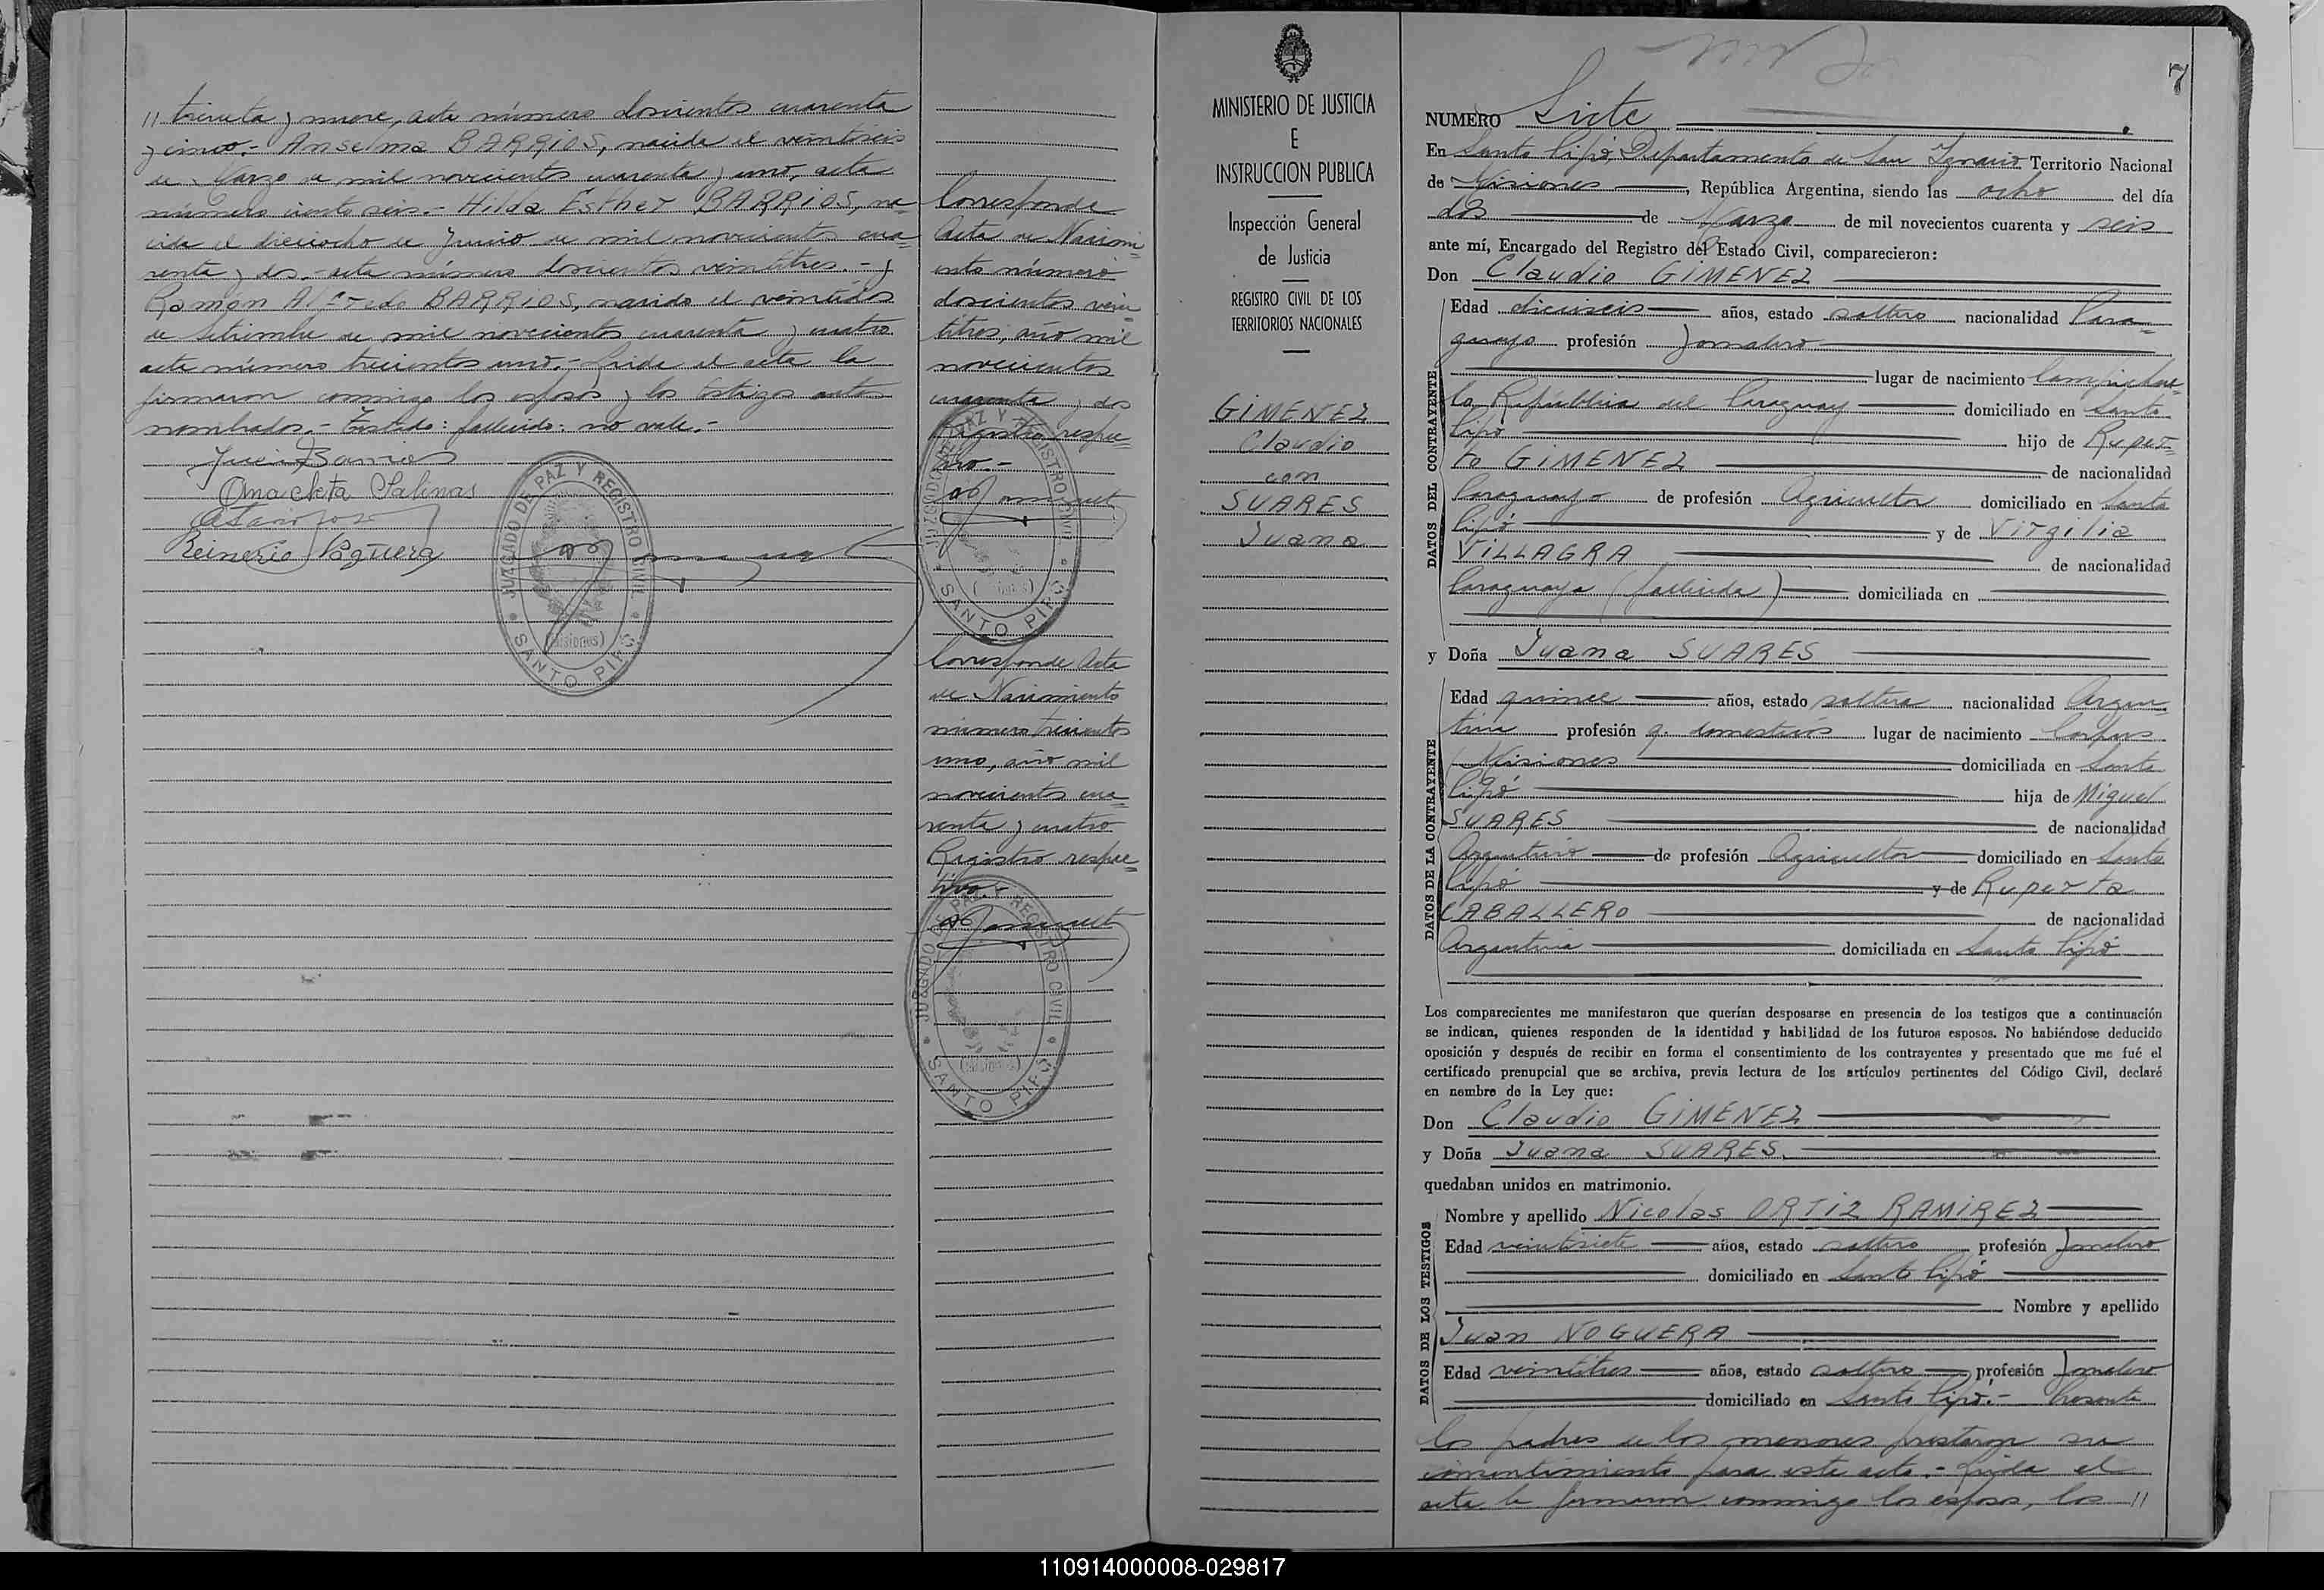 // treinta y nueve, acta número doscientos cuarenta
y cinco.- Anselma BARRIOS, nacida el veintiseis
de Marzo de mil novecientos cuarenta y uno, acta
número ciento seis.- Hilda Esther BARRIOS, na=
cida el dieciocho de Junio de mil novecientos cua=
renta y dos.- acta número doscientos veintitres.- y
Ramon Alfredo BARRIOS, nacido el veintidos
de Setiembre de mil novecientos cuarenta y cuatro
acta número trecientos uno.- Leida el acta la
firmaron conmigo los esposos y los testigos antes
nombrados.- Testado: fallecido: no vale.-
Barrios
Anacleta Salinas
JUZGADO DE PAZ Y REGISTRO CIVIL
(Misiones)
SANTO PIPÓ
Corresponde
Acta de Nacimi=
ento número
doscientos vein
titres, año mil
novecientos
cuarenta y dos
Registro respec=
tivo.-
JUZGADO DE PAZ Y REGISTRO CIVIL
SANTO PIPÓ
Corresponde Acta
de Nacimiento
número trecientos
uno, año mil
novecientos cua=
renta y cuatro
Registro respec=
tivo.-
JUZGADO DE PAZ Y REGISTRO CIVIL
(Misiones)
SANTO PIPÓ
MINISTERIO DE JUSTICIA
E
INSTRUCCION PUBLICA
Inspección General
de Justicia
REGISTRO CIVIL DE LOS
TERRITORIOS NACIONALES
GIMENEZ
Claudio
con
SUARES
Juana
7
NUMERO Siete
En Santo Pipó, Departamento de San Ignacio Territorio Nacional
de Misiones, República Argentina, siendo las ocho del día
dos de Marzo de mil novecientos cuarenta y seis
ante mí, Encargado del Registro del Estado Civil, comparecieron:
Don Claudio GIMENEZ
DATOS DEL CONTRAYENTE
Edad dieciseis años, estado soltero nacionalidad Para=
guayo profesión Jornalero
lugar de nacimiento
la República del Paraguay domiciliado en Santo
Pipó hijo de Ruper=
to GIMENEZ de nacionalidad
Paraguayo de profesión Agricultor domiciliado en Santo
Pipó y de Virgilia
VILLAGRA de nacionalidad
Paraguaya (fallecida) domiciliada en
y Doña Juana SUARES
DATOS DE LA CONTRAYENTE
Edad quince años, estado soltera nacionalidad Argen=
tina profesión q. domesticos lugar de nacimiento Corpus
Misiones domiciliada en Santo
Pipó hija de Miguel
SUARES de nacionalidad
Argentino de profesión Agricultor domiciliado en Santo
Pipó y de Ruperta
CABALLERO de nacionalidad
Argentina domiciliada en Santo Pipó
Los comparecientes me manifestaron que querían desposarse en presencia de los testigos que a continuación
se indican, quienes responden de la identidad y habilidad de los futuros esposos. No habiéndose deducido
oposición y después de recibir en forma el consentimiento de los contrayentes y presentado que me fué el
certificado prenupcial que se archiva, previa lectura de los artículos pertinentes del Código Civil, declaré
en nombre de la Ley que:
Don Claudio GIMENEZ
y Doña Juana SUARES.
quedaban unidos en matrimonio.
DATOS DE LOS TESTIGOS
Nombre y apellido Nicolas ORTIZ RAMIREZ
Edad veintisiete años, estado soltero profesión Jornalero
domiciliado en Santo Pipó
Nombre y apellido
Juan NOGUERA
Edad veintitres años, estado soltero profesión Jornalero
domiciliado en Santo Pipó.- Presente
los padres de los menores prestaron su
consentimiento para este acto.- Leida el
acta la firmaron conmigo los esposos, los //
110914000008-029817